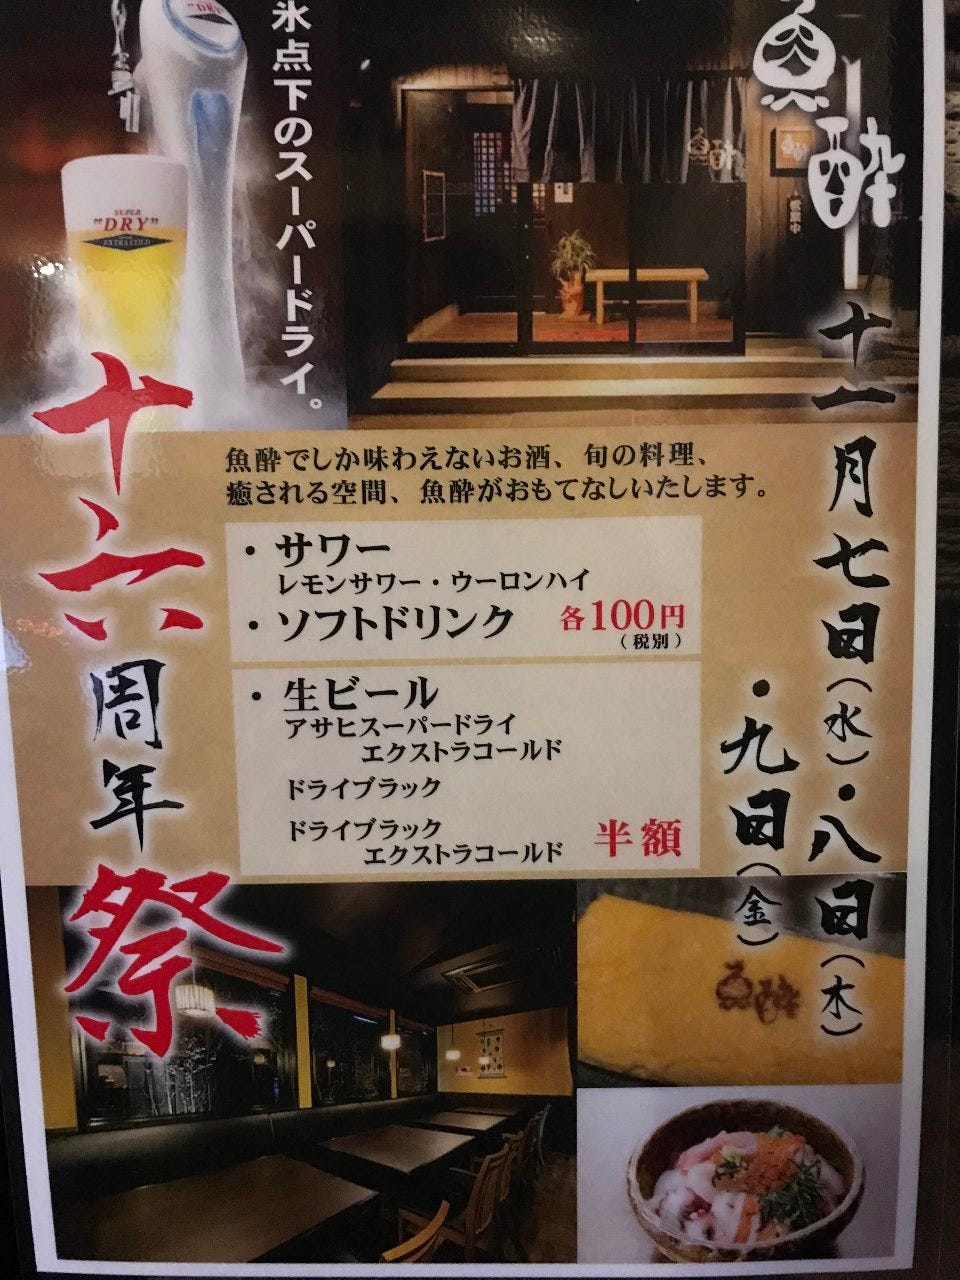 魚酔
氷点下のスーパードライ。
SUPER
"DRY"
EXTRA COLD
魚酔
十一月七日(水)・八日(木)
・九日(金)
十六周年祭
魚酔でしか味わえないお酒、旬の料理、
癒される空間、魚酔がおもてなしいたします。
・サワー
レモンサワー・ウーロンハイ
・ソフトドリンク 各100円
(税別)
・生ビール
アサヒスーパードライ
エクストラコールド
ドライブラック
ドライブラック
エクストラコールド 半額
魚酔